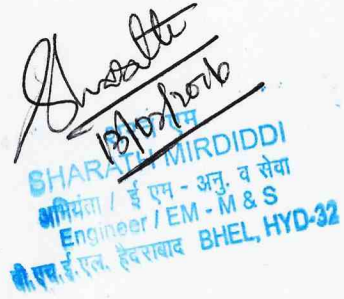 Sharath
SHARATH MIRDIDDI
अभियंता / ई एम - अनु. व सेवा
Engineer / EM - M & S
बी.एच.ई.एल. हैदराबाद BHEL, HYD-32